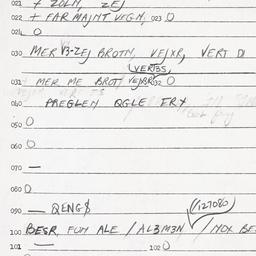 021 + ZOLN, ZEJ
022 + FAR MAJNT VEGN, 023 O
024 O
030 MER V3-ZEJ BROTN, VEJXR, VERT DI
VERTBS,
031 + MER ME BROT VEJXR 032 O
040 PREGLEN QGLE FRY
050 O
060 O
070 —
080 O
090 — QENG$
(127080)
100 BESR, FUM ALE / AL3M3N / NOX BE
101 — 102 O